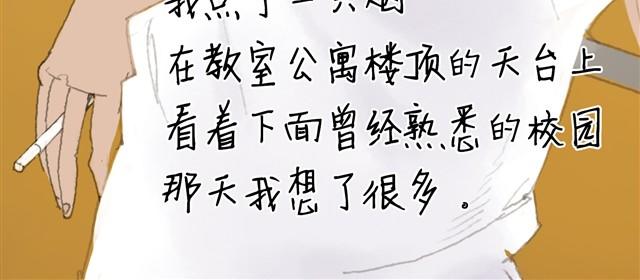 我点了一支烟
在教室公寓楼顶的天台上
看着下面曾经熟悉的校园
那天我想了很多。